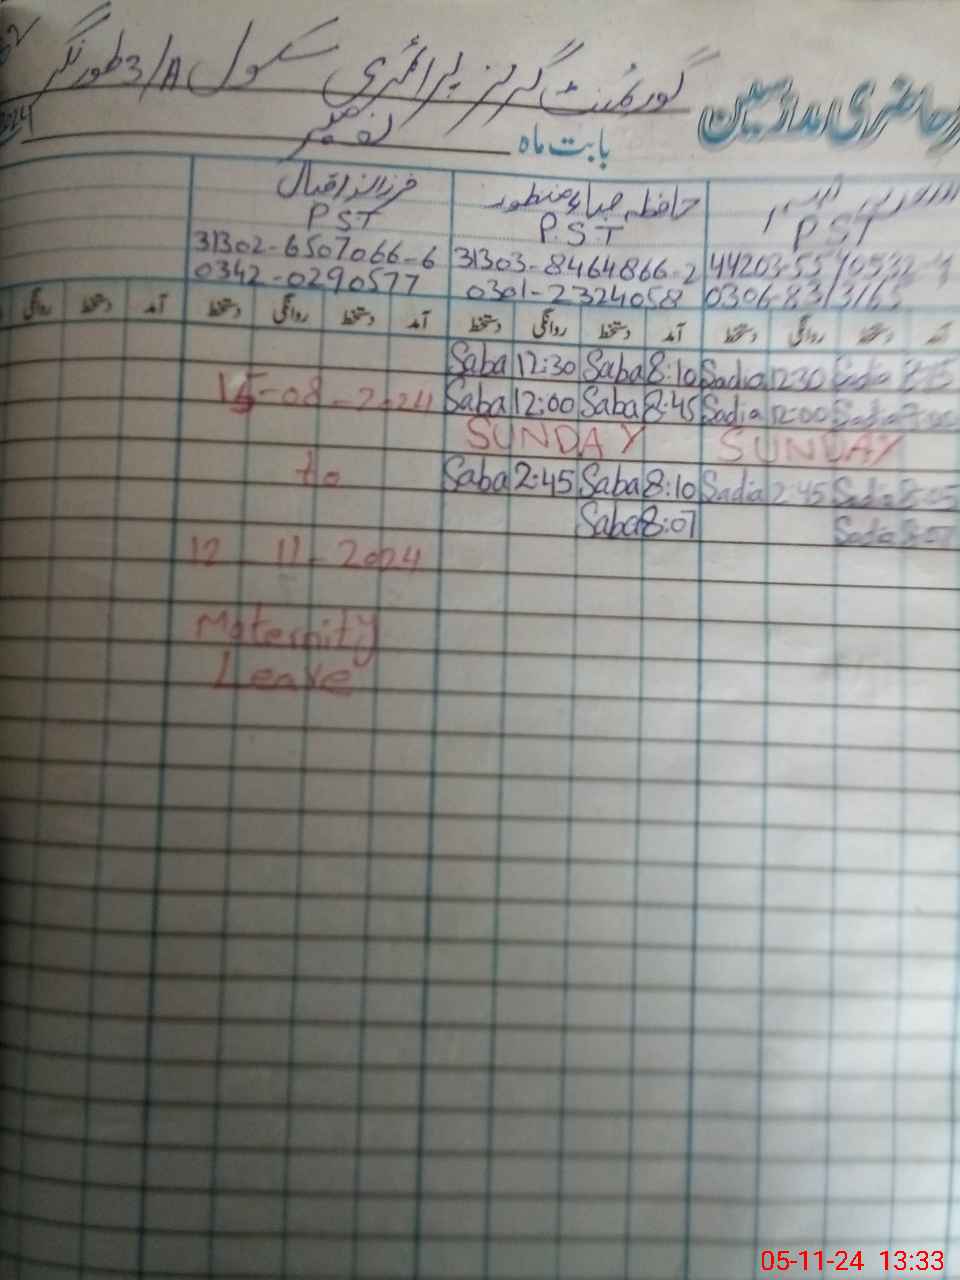 حاضری مدرسین گورنمنٹ گرلز پرائمری سکول 3/A
بابت ماہ نومبر
حافظہ صباء منظور فرزانہ اقبال
PST P.S.T PST
31303-8464866-2 31302-6507066-6
0301-2324058 0342-0290577
آمد دستخط روانگی دستخط آمد دستخط روانگی دستخط آمد دستخط روانگی دستخط آمد دستخط روانگی
Saba 12:30 Saba 8:10 Sadia 12:30 Sadia 8:15
15-08-2024 Saba 12:00 Saba 8:45 Sadia 12:00 Sadia
SUNDAY SUNDAY
to Saba 2:45 Saba 8:10 Sadia 2:45 Sadia 8:05
Saba 8:07 Sadia 8:07
12-11-2024
Maternity
Leave
05-11-24 13:33